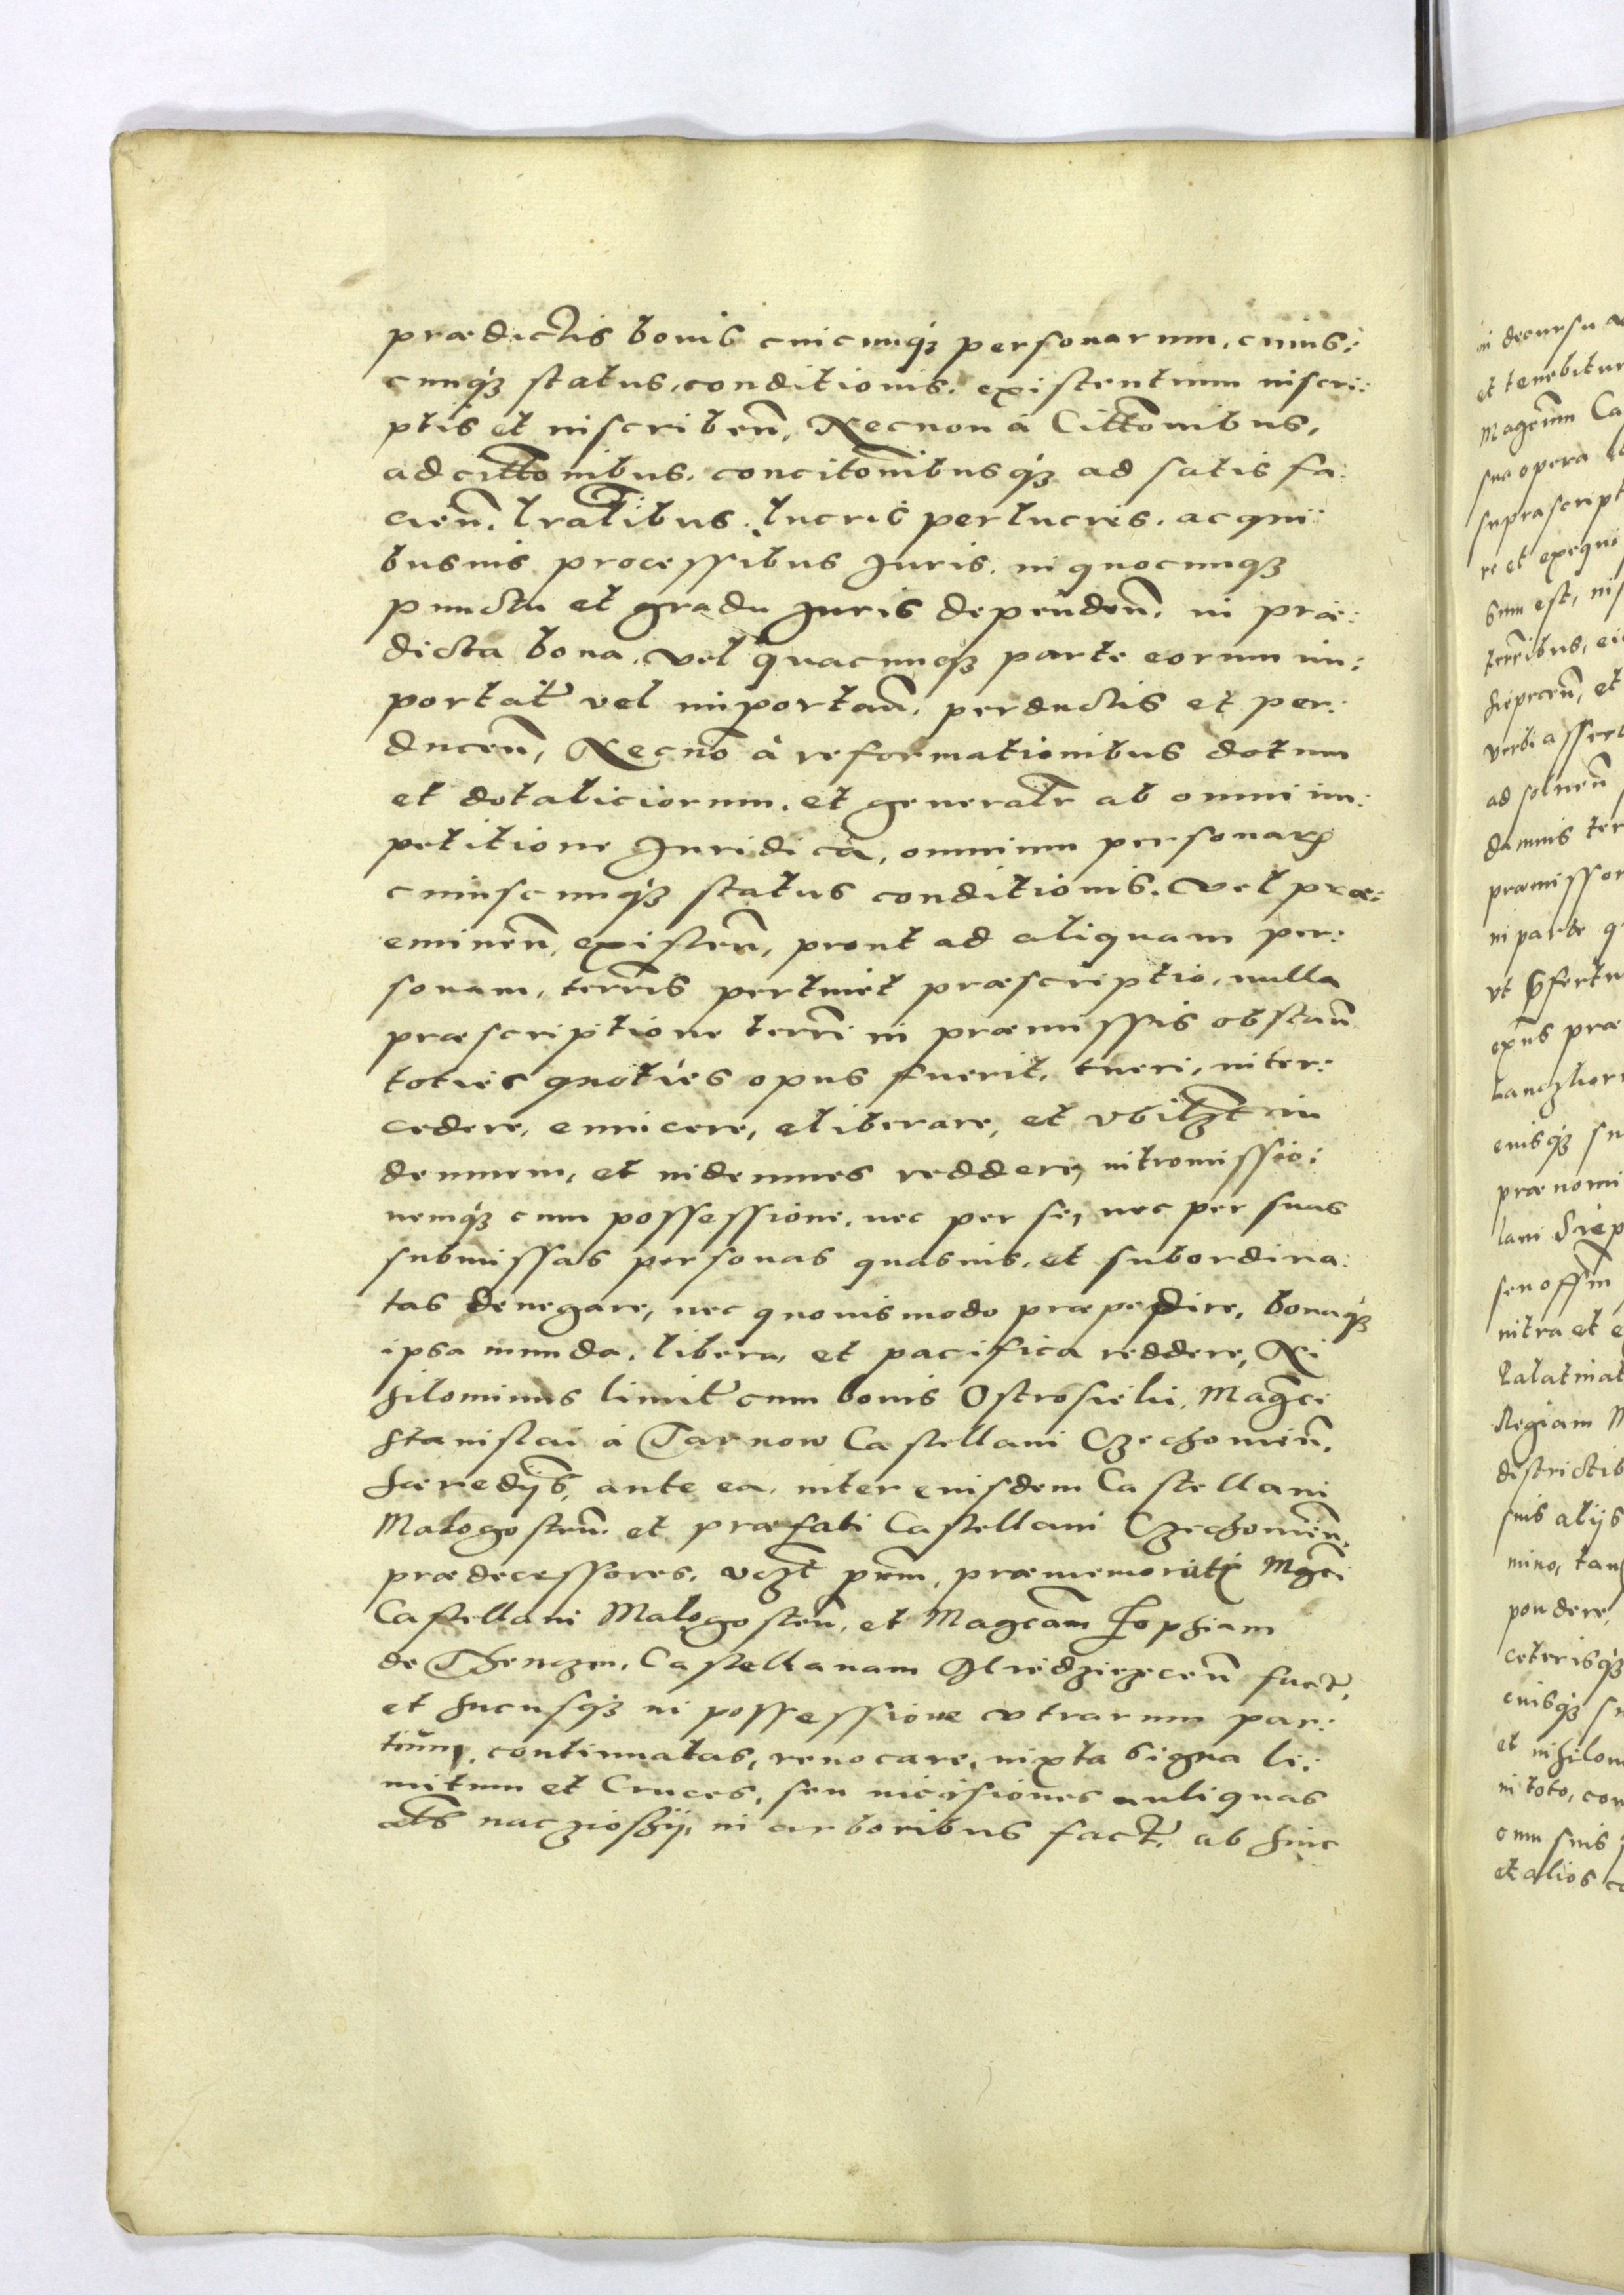 prædictis bonis cuicunq3 personarum, cuius:
cunq3 status, conditionis. existentium inscri:
ptis et inscribeñ, Necnon á Cittõnibus,
adcittõnibus. concitõnibusq3 ad satis fa:
cieñ. lratlibus. lucris perlucris. ac qui:
busuis processibus Juris. in quocunq3
punctu et gradu Juris dependeñ. in præ:
dicta bona, vel quacunq3 parte eorum im:
portat̃ vel importañ. perductis et per:
duceñ, Necnõ à reformationibus dotum
et dotaliciorum. et generalr̃ ab omni im:
petitione Juridica, omnium personarꝝ
cuiuscunq3 status conditionis. vel præ:
emineñ, existeñ, prout ad aliquam per:
sonam, terr̃is pertinet præscriptio, nulla
præscriptione terr̃i in præmissis obstañ
toties quoties opus fuerit, tueri, inter:
cedere, euincere, eliberare, et vbilz̃t in
demnem, et indemnes reddere, intromissio:
nemq3 cum possessione, nec per se, nec per suas
submissas personas quasuis, et subordina:
tas denegare, nec quouis modo præpedire, bonaq3
ipsa munda, libera, et pacifica reddere, Ni
hilominus limit̃ cum bonis Ostrosielii, Magc̃i
Stanislai á Tarnow Castellani Czechouieñ,
hæredijs̃, ante ea, inter eiusdem Castellani
Malogosteñ. et præfati Castellani Czechouieñ,
prædecessores. vcz̃t pr̃m, præmemorati Mgc̃i
Castellani Malogosteñ, et Magcãm Zophiam
de Thenczin, Castellanam Miedzirzeceñ fact̃,
et hucusq3 in possessione vtrarum par:
tium, continuatas, renocare, iuxta signa li:
mitum et Cruces, seu incisiones antiquas
als̃ naczioshÿ, in arboribus fact̃. ab hinc
in decursu
et tenebitur
Magc̃um Ca
sua opera
suprascript
re et exequi
sum est,
terr̃ibus,
verbi assert
ad solueñ
damnis ter
præmissor
in parte q
eiusq3 su
prænomi
intra et e
Palatinat
Regiam M
districtib
suis alijs
mino, tan
pondere,
ceterisq3
eiusq3 su
et nihilom
in toto, cor
cum suis
et alios co